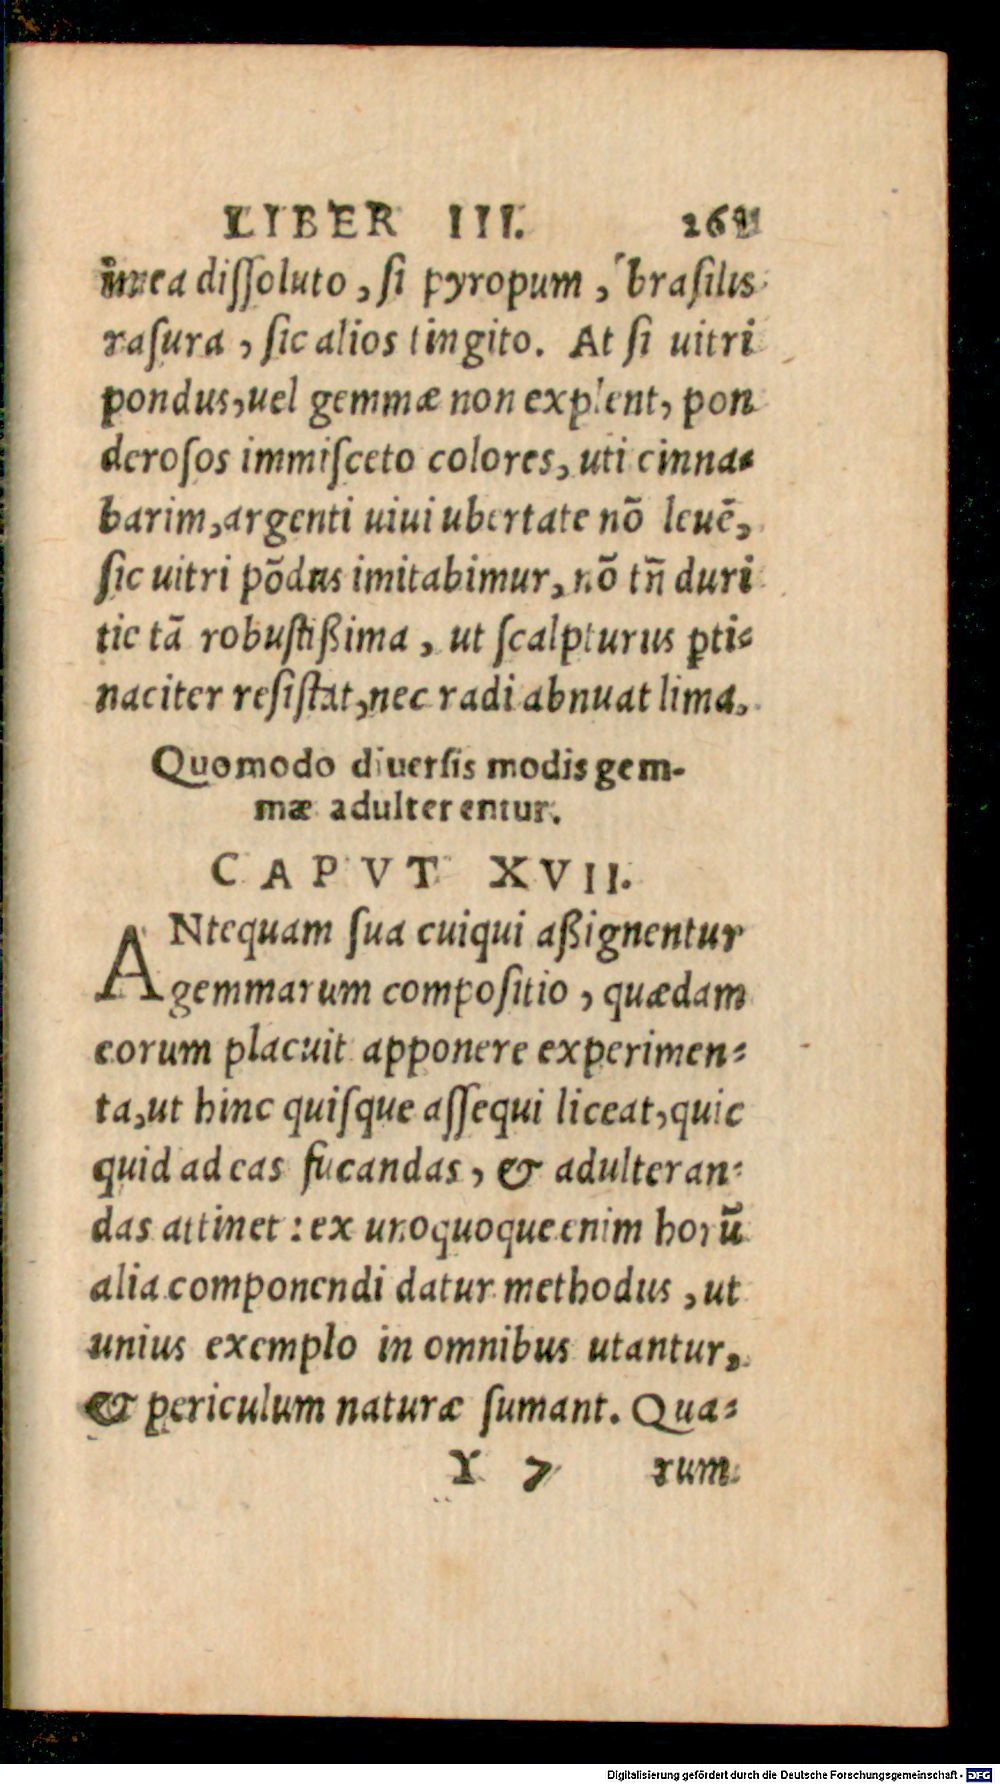 LIBER III.
inea dissoluto, si pyropum, brasilis
rasura, sic alios tingito. At si uitri
pondus, uel gemmæ non explent, pon
derosos immisceto colores, uti cinna-
barim, argenti uiui ubertate nõ leuẽ,
sic uitri põdus imitabimur, nõ tñ duri
tic tã robustißima, ut scalpturus ꝑti-
naciter resistat, nec radi abnuat lima.
Quomodo diuersis modis gem-
mæ adulterentur.
CAPVT XVII.
ANtequam sua cuiqui aßignentur
gemmarum compositio, quædam
eorum placuit apponere experimen-
ta, ut hinc quisque assequi liceat, quic
quid ad eas fucandas, & adulteran-
das attinet: ex unoquoque enim horũ
alia componendi datur methodus, ut
unius exemplo in omnibus utantur,
& periculum naturæ sumant. Qua-
Y 7 rum
Digitalisierung gefördert durch die Deutsche Forschungsgemeinschaft - DFG